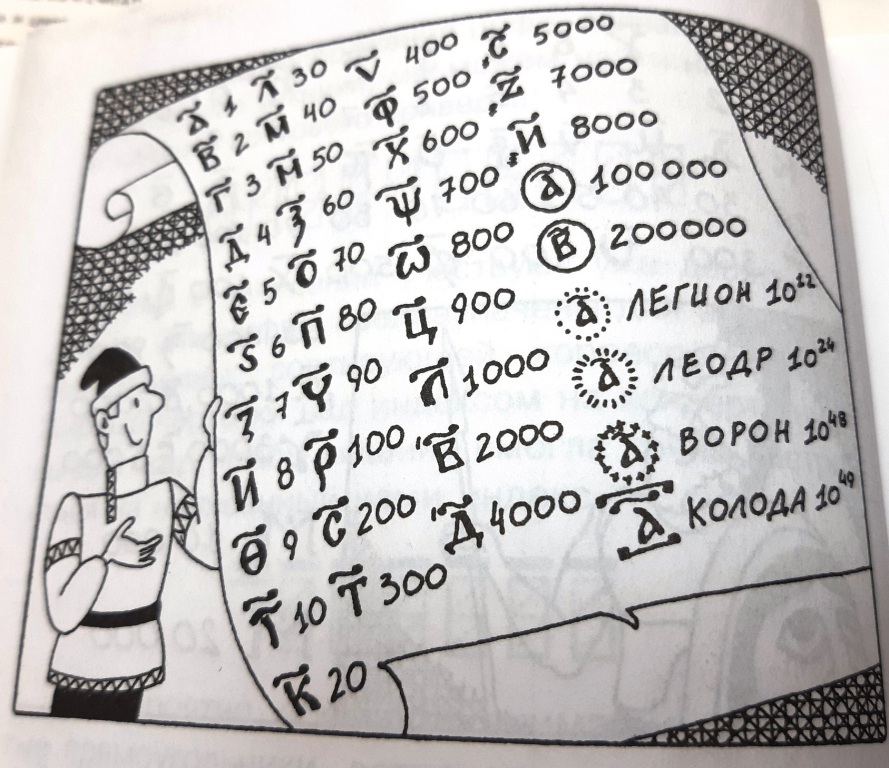 А҃ 1
В҃ 2
Г҃ 3
Д҃ 4
Є҃ 5
Ѕ҃ 6
З҃ 7
И҃ 8
Ѳ҃ 9
І҃ 10
К҃ 20
Л҃ 30
М҃ 40
М҃ 50
Ѯ҃ 60
О҃ 70
П҃ 80
Ү҃ 90
Р҃ 100
С҃ 200
Т҃ 300
Ѵ҃ 400
Ф҃ 500
Х҃ 600
Ѱ҃ 700
Ѡ҃ 800
Ц҃ 900
1000
҂В҃ 2000
҂Д҃ 4000
҂Є҃ 5000
҂Z҃ 7000
҂И҃ 8000
А҃ 100000
В҃ 200000
А҃ ЛЕГИОН 10¹²
А҃ ЛЕОДР 10²⁴
А҃ ВОРОН 10⁴⁸
А҃ КОЛОДА 10⁴⁹